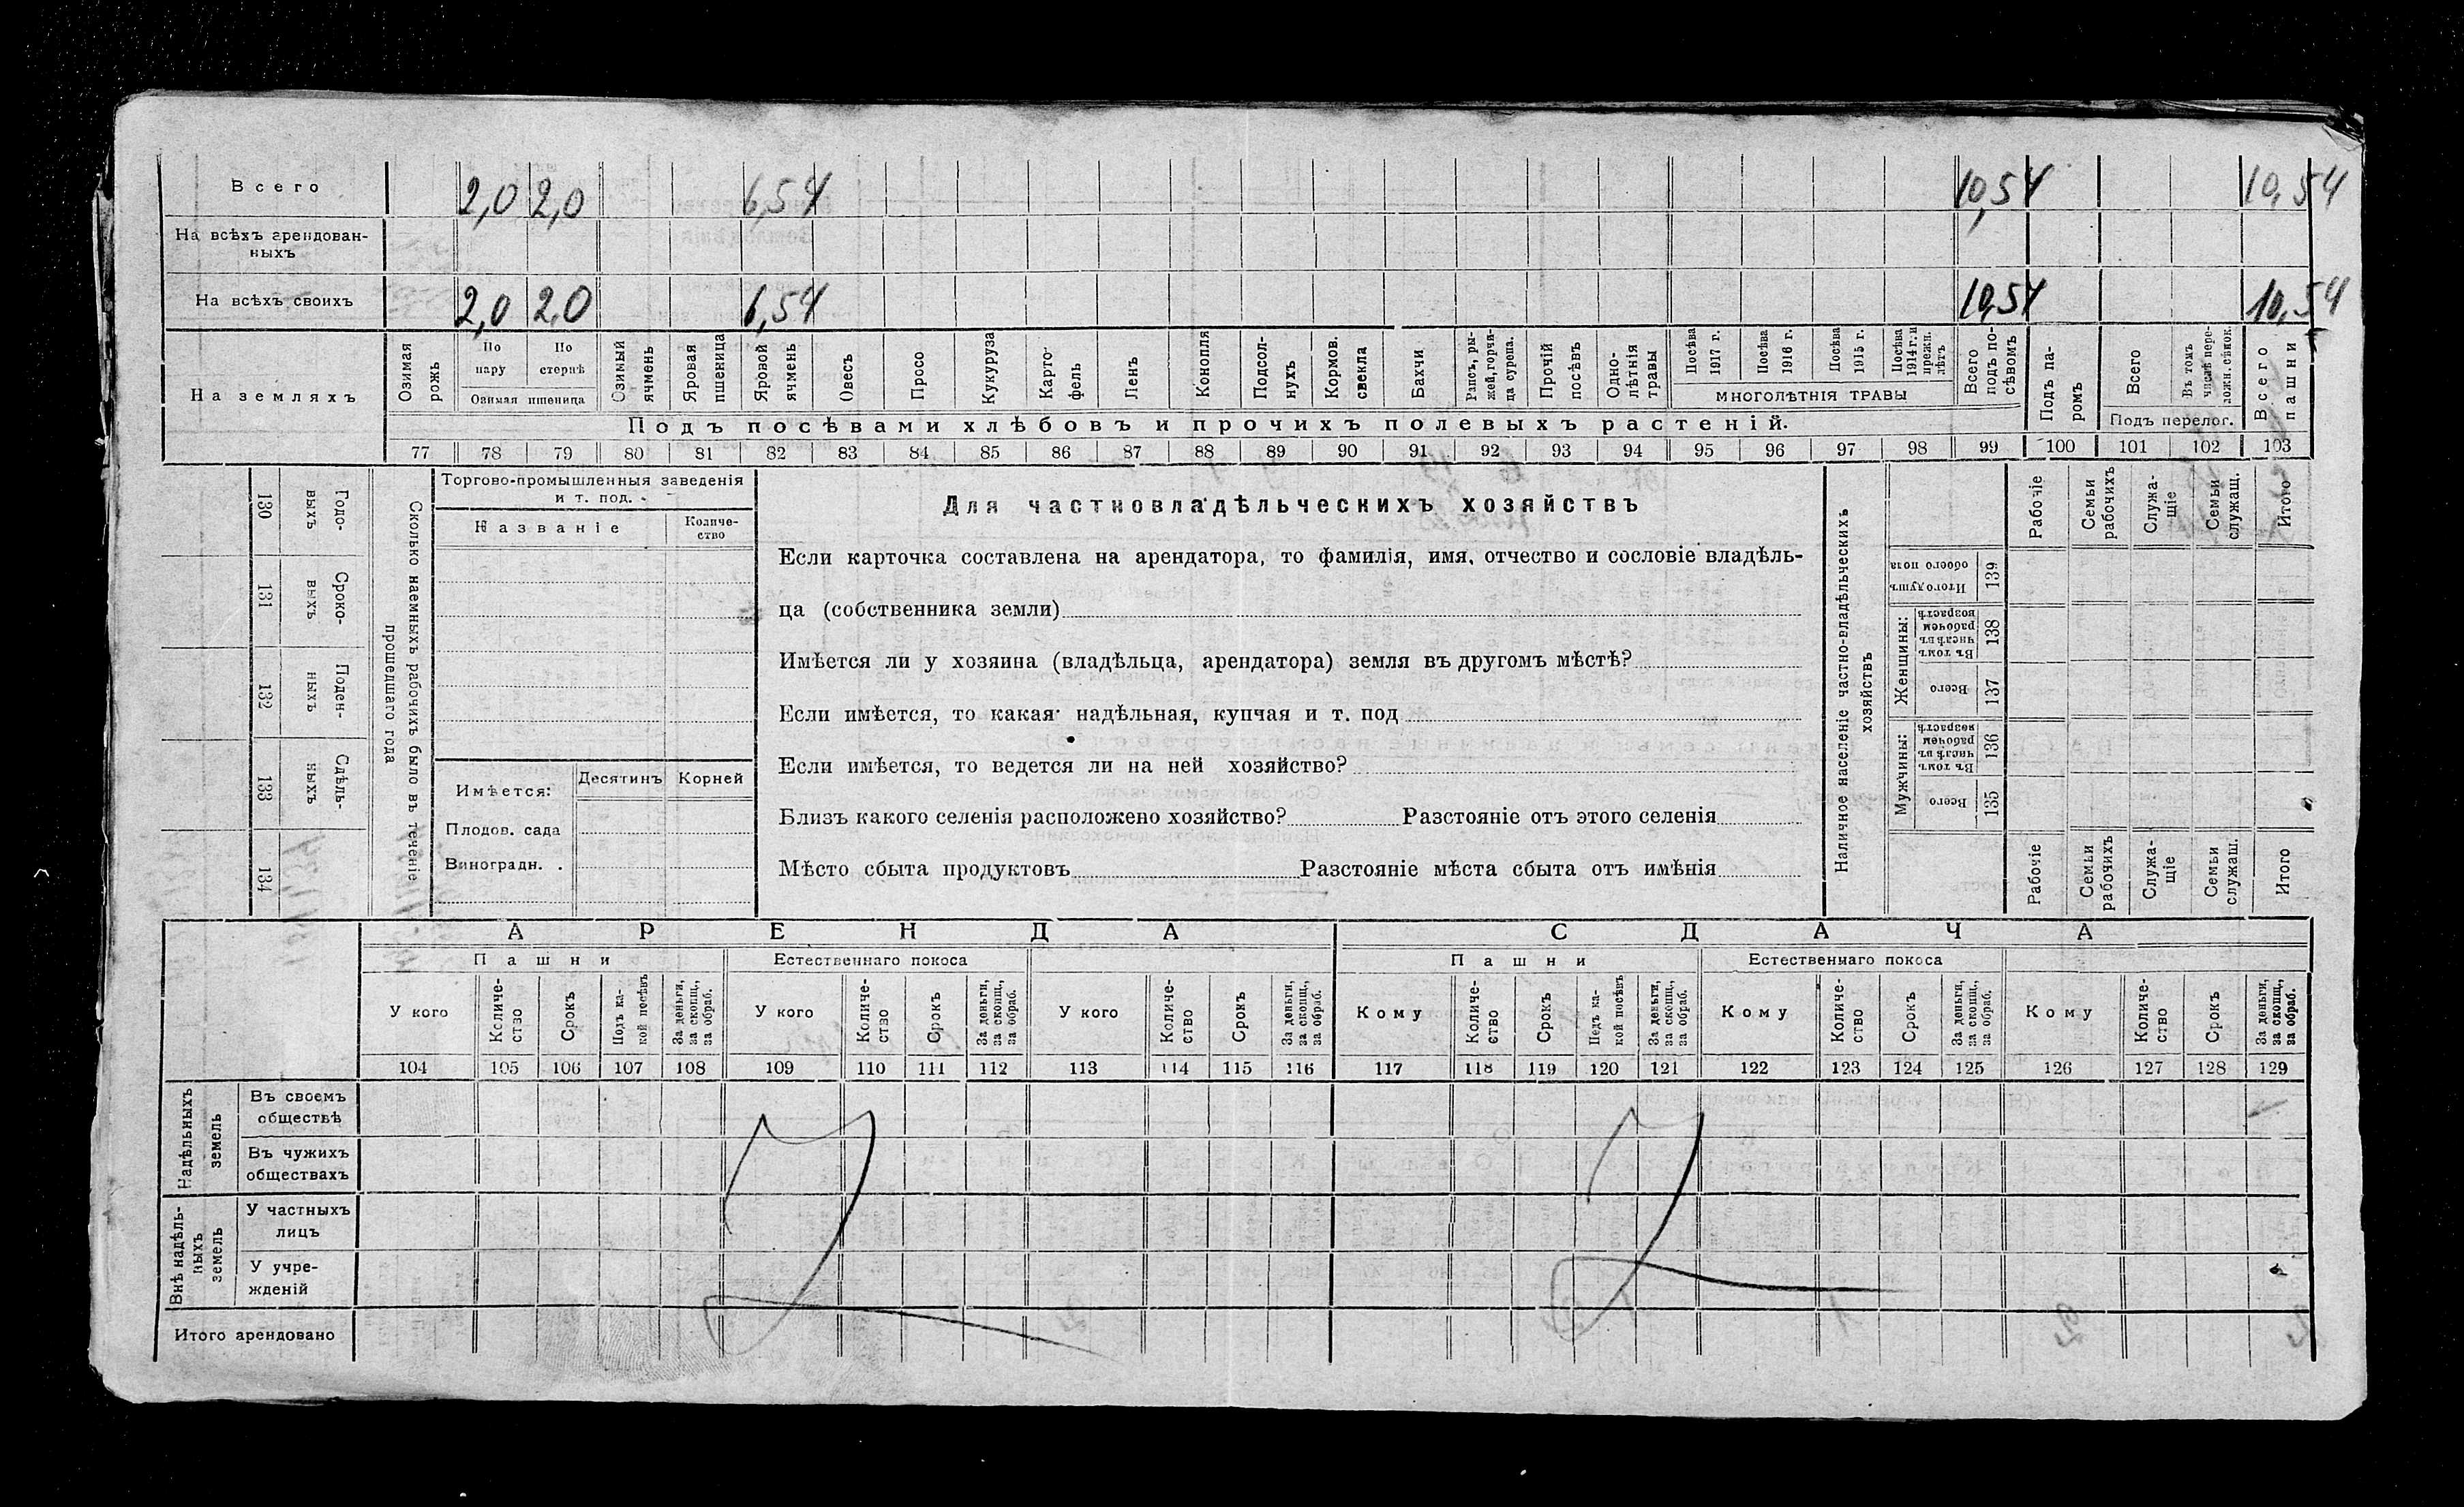 Всего 2,0 2,0 6,54 10,54 10,54
На всѣхъ арендован-
ныхъ
На всѣхъ своихъ 2,0 2,0 6,54 10,54 10,54
На земляхъ
Озимая рожь
По пару
По стернѣ
Озимая пшеница
Озимый ячмень
Яровая пшеница
Яровой ячмень
Овесъ
Просо
Кукуруза
Карто-
фель
Ленъ
Конопля
Подсол-
нухъ
Кормов. свекла
Бахчи
Рапсъ, ры-
жей, горчи-
ца сурепа.
Прочій посѣвъ
Одно-
лѣтнія травы
Посѣва 1917 г.
Посѣва 1916 г.
Посѣва 1915 г.
Посѣва 1914 г. и прежн. лѣтъ
МНОГОЛѢТНІЯ ТРАВЫ
Всего подъ по-
сѣвомъ
Подъ па-
ромъ
Всего
Въ томъ числѣ пере-
ложн. сѣнок.
Подъ перелог.
Всего пашни
Подъ посѣвами хлѣбовъ и прочихъ полевыхъ растеній.
77 78 79 80 81 82 83 84 85 86 87 88 89 90 91 92 93 94 95 96 97 98 99 100 101 102 103
130 Годо-
выхъ
131 Сроко-
выхъ
132 Поден-
ныхъ
133 Сдѣль-
ныхъ
134
Сколько наемныхъ рабочихъ было въ теченіе
прошедшаго года
Торгово-промышленныя заведенія
и т. под.
Названіе
Количе-
ство
Имѣется: Десятинъ Корней
Плодов. сада
Виноградн. .
Для частновладѣльческихъ хозяйствъ
Если карточка составлена на арендатора, то фамилія, имя, отчество и сословіе владѣль-
ца (собственника земли)
Имѣется ли у хозяина (владѣльца, арендатора) земля въ другомъ мѣстѣ?
Если имѣется, то какая надѣльная, купчая и т. под
Если имѣется, то ведется ли на ней хозяйство?
Близъ какого селенія расположено хозяйство? Разстояніе отъ этого селенія
Мѣсто сбыта продуктовъ Разстояніе мѣста сбыта отъ имѣнія
Наличное населеніе частно-владѣльческихъ
хозяйствъ
Рабочіе
Семьи рабочихъ
Служа-
щіе
Семьи служащ.
Итого
Итого душъ обоего пола 139
Женщины:
Въ томъ числѣ въ рабочем возрастѣ 138
Всего 137
Мужчины:
Въ томъ числѣ въ рабочем возрастѣ 136
Всего 135
Рабочіе
Семьи рабочихъ
Служа-
щіе
Семьи служащ.
Итого
АРЕНДА СДАЧА
Пашни Естественнаго покоса Пашни Естественнаго покоса
У кого
Количе-
ство
Срокъ
Подъ ка-
кой посѣвъ
За деньги, за скопщ., за обраб.
У кого
Количе-
ство
Срокъ
За деньги, за скопщ., за обраб.
У кого
Количе-
ство
Срокъ
За деньги, за скопщ., за обраб.
Кому
Количе-
ство
Срокъ
Подъ ка-
кой посѣвъ
За деньги, за скопщ., за обраб.
Кому
Количе-
ство
Срокъ
За деньги, за скопщ., за обраб.
Кому
Количе-
ство
Срокъ
За деньги, за скопщ., за обраб.
104 105 106 107 108 109 110 111 112 113 114 115 116 117 118 119 120 121 122 123 124 125 126 127 128 129
Надѣльныхъ
земель
Въ своемъ
обществѣ
Въ чужихъ
обществахъ
Внѣ надѣль-
ныхъ
земель
У частныхъ
лицъ
У учре-
жденій
Итого арендовано